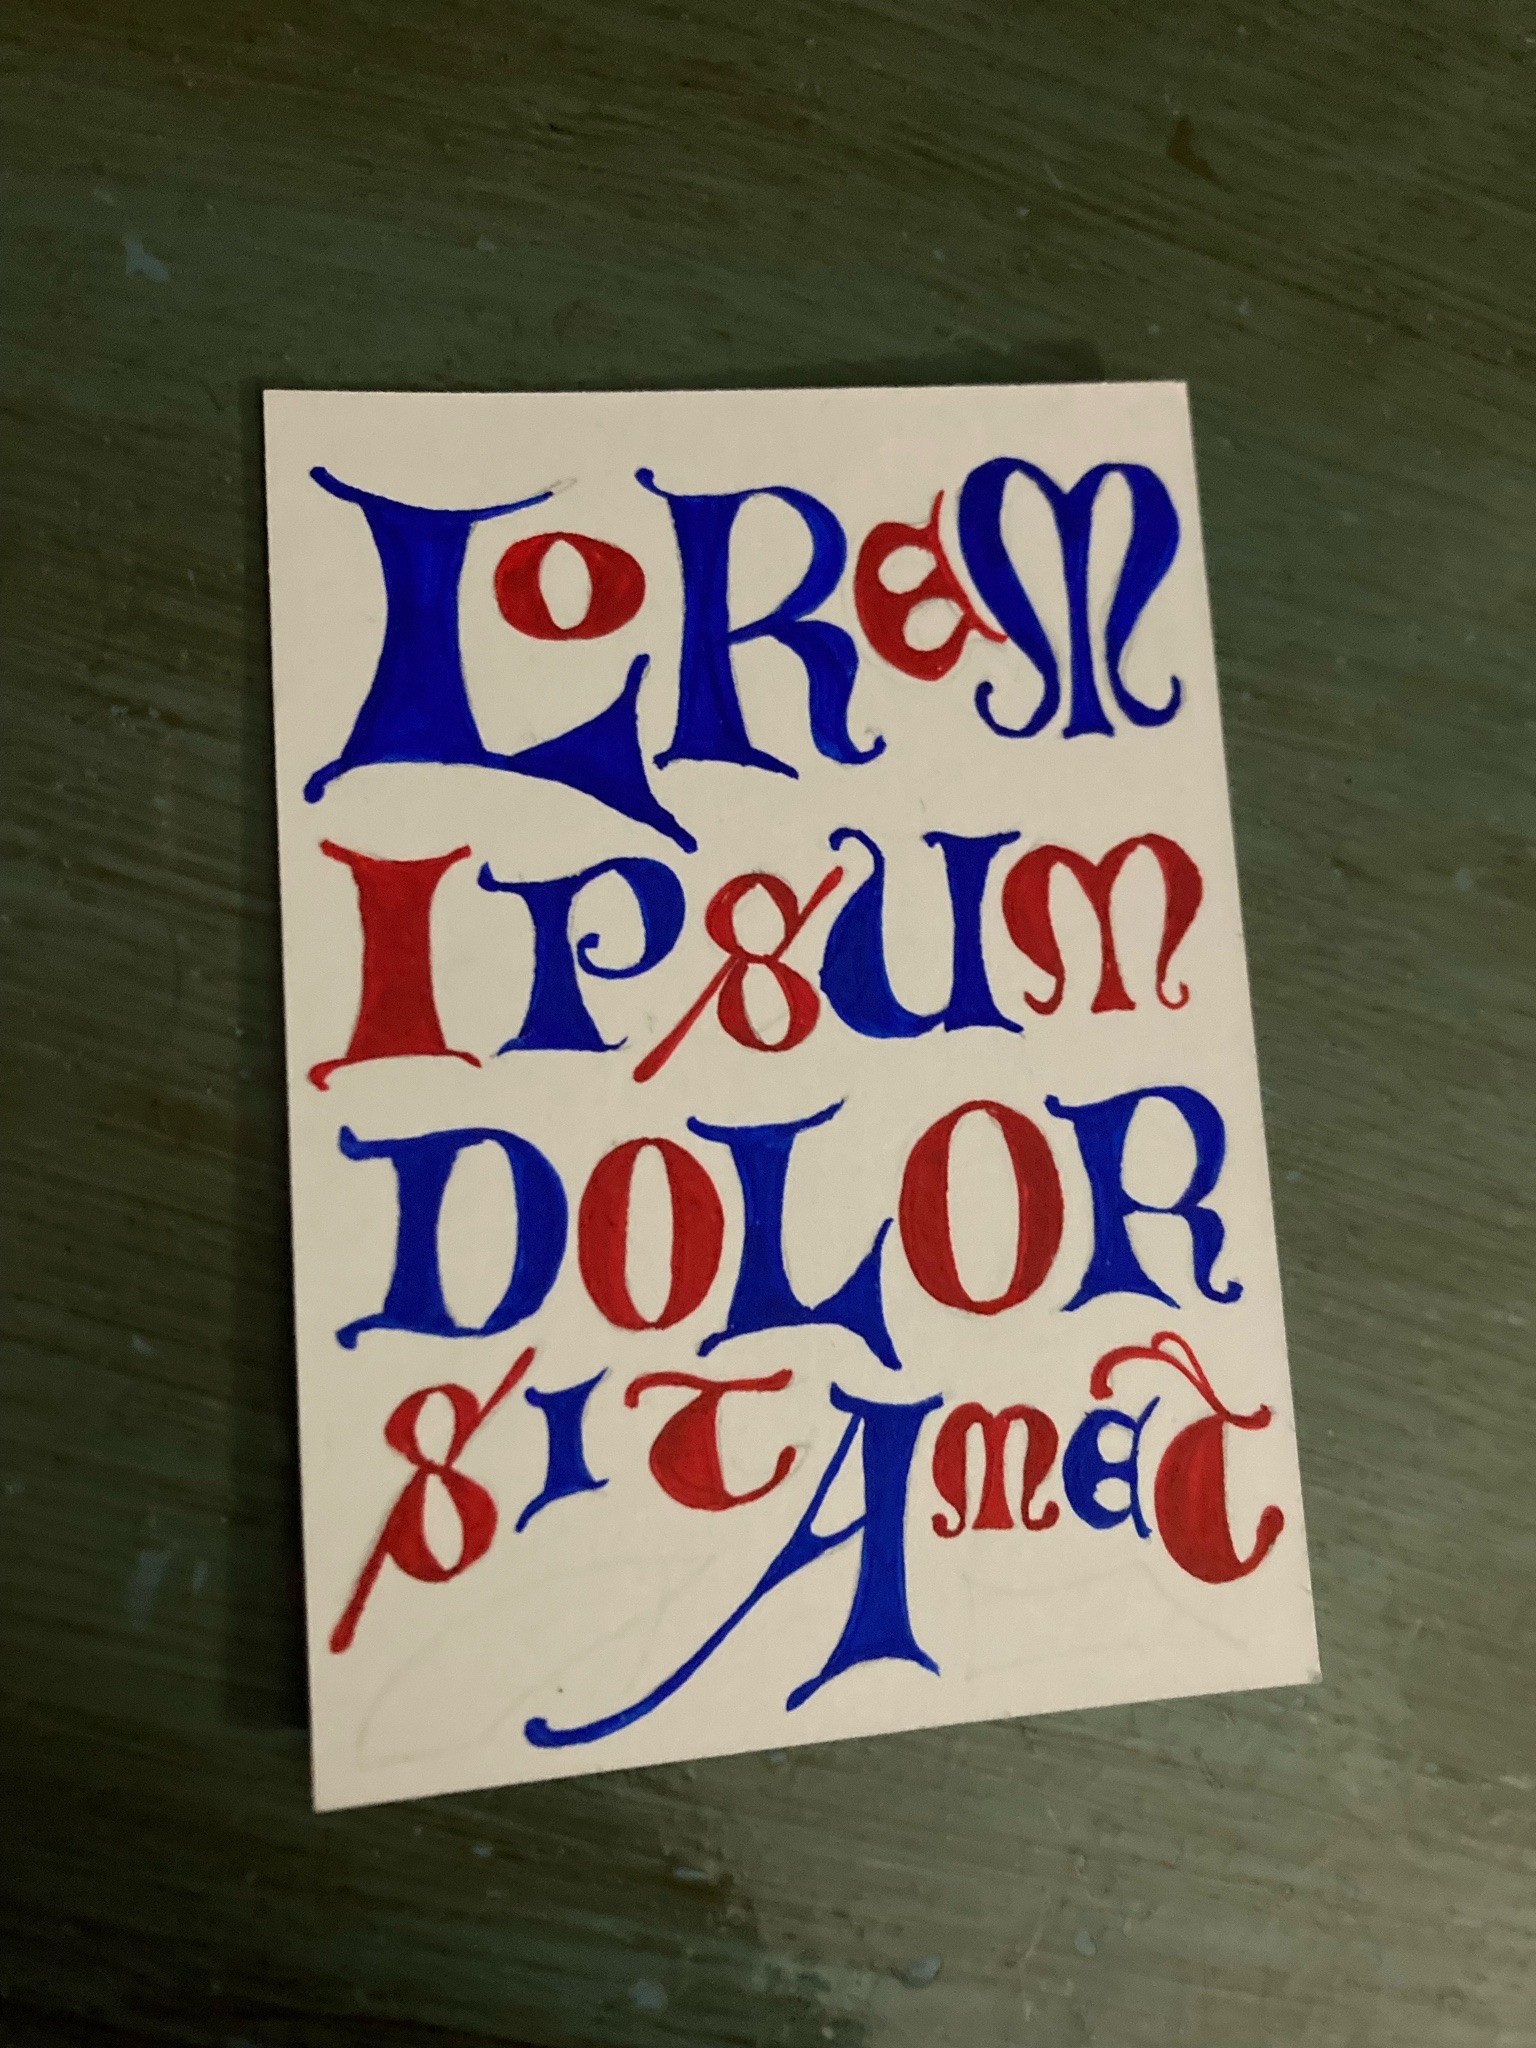 LOREM
IPSUM
DOLOR
SIT AMET